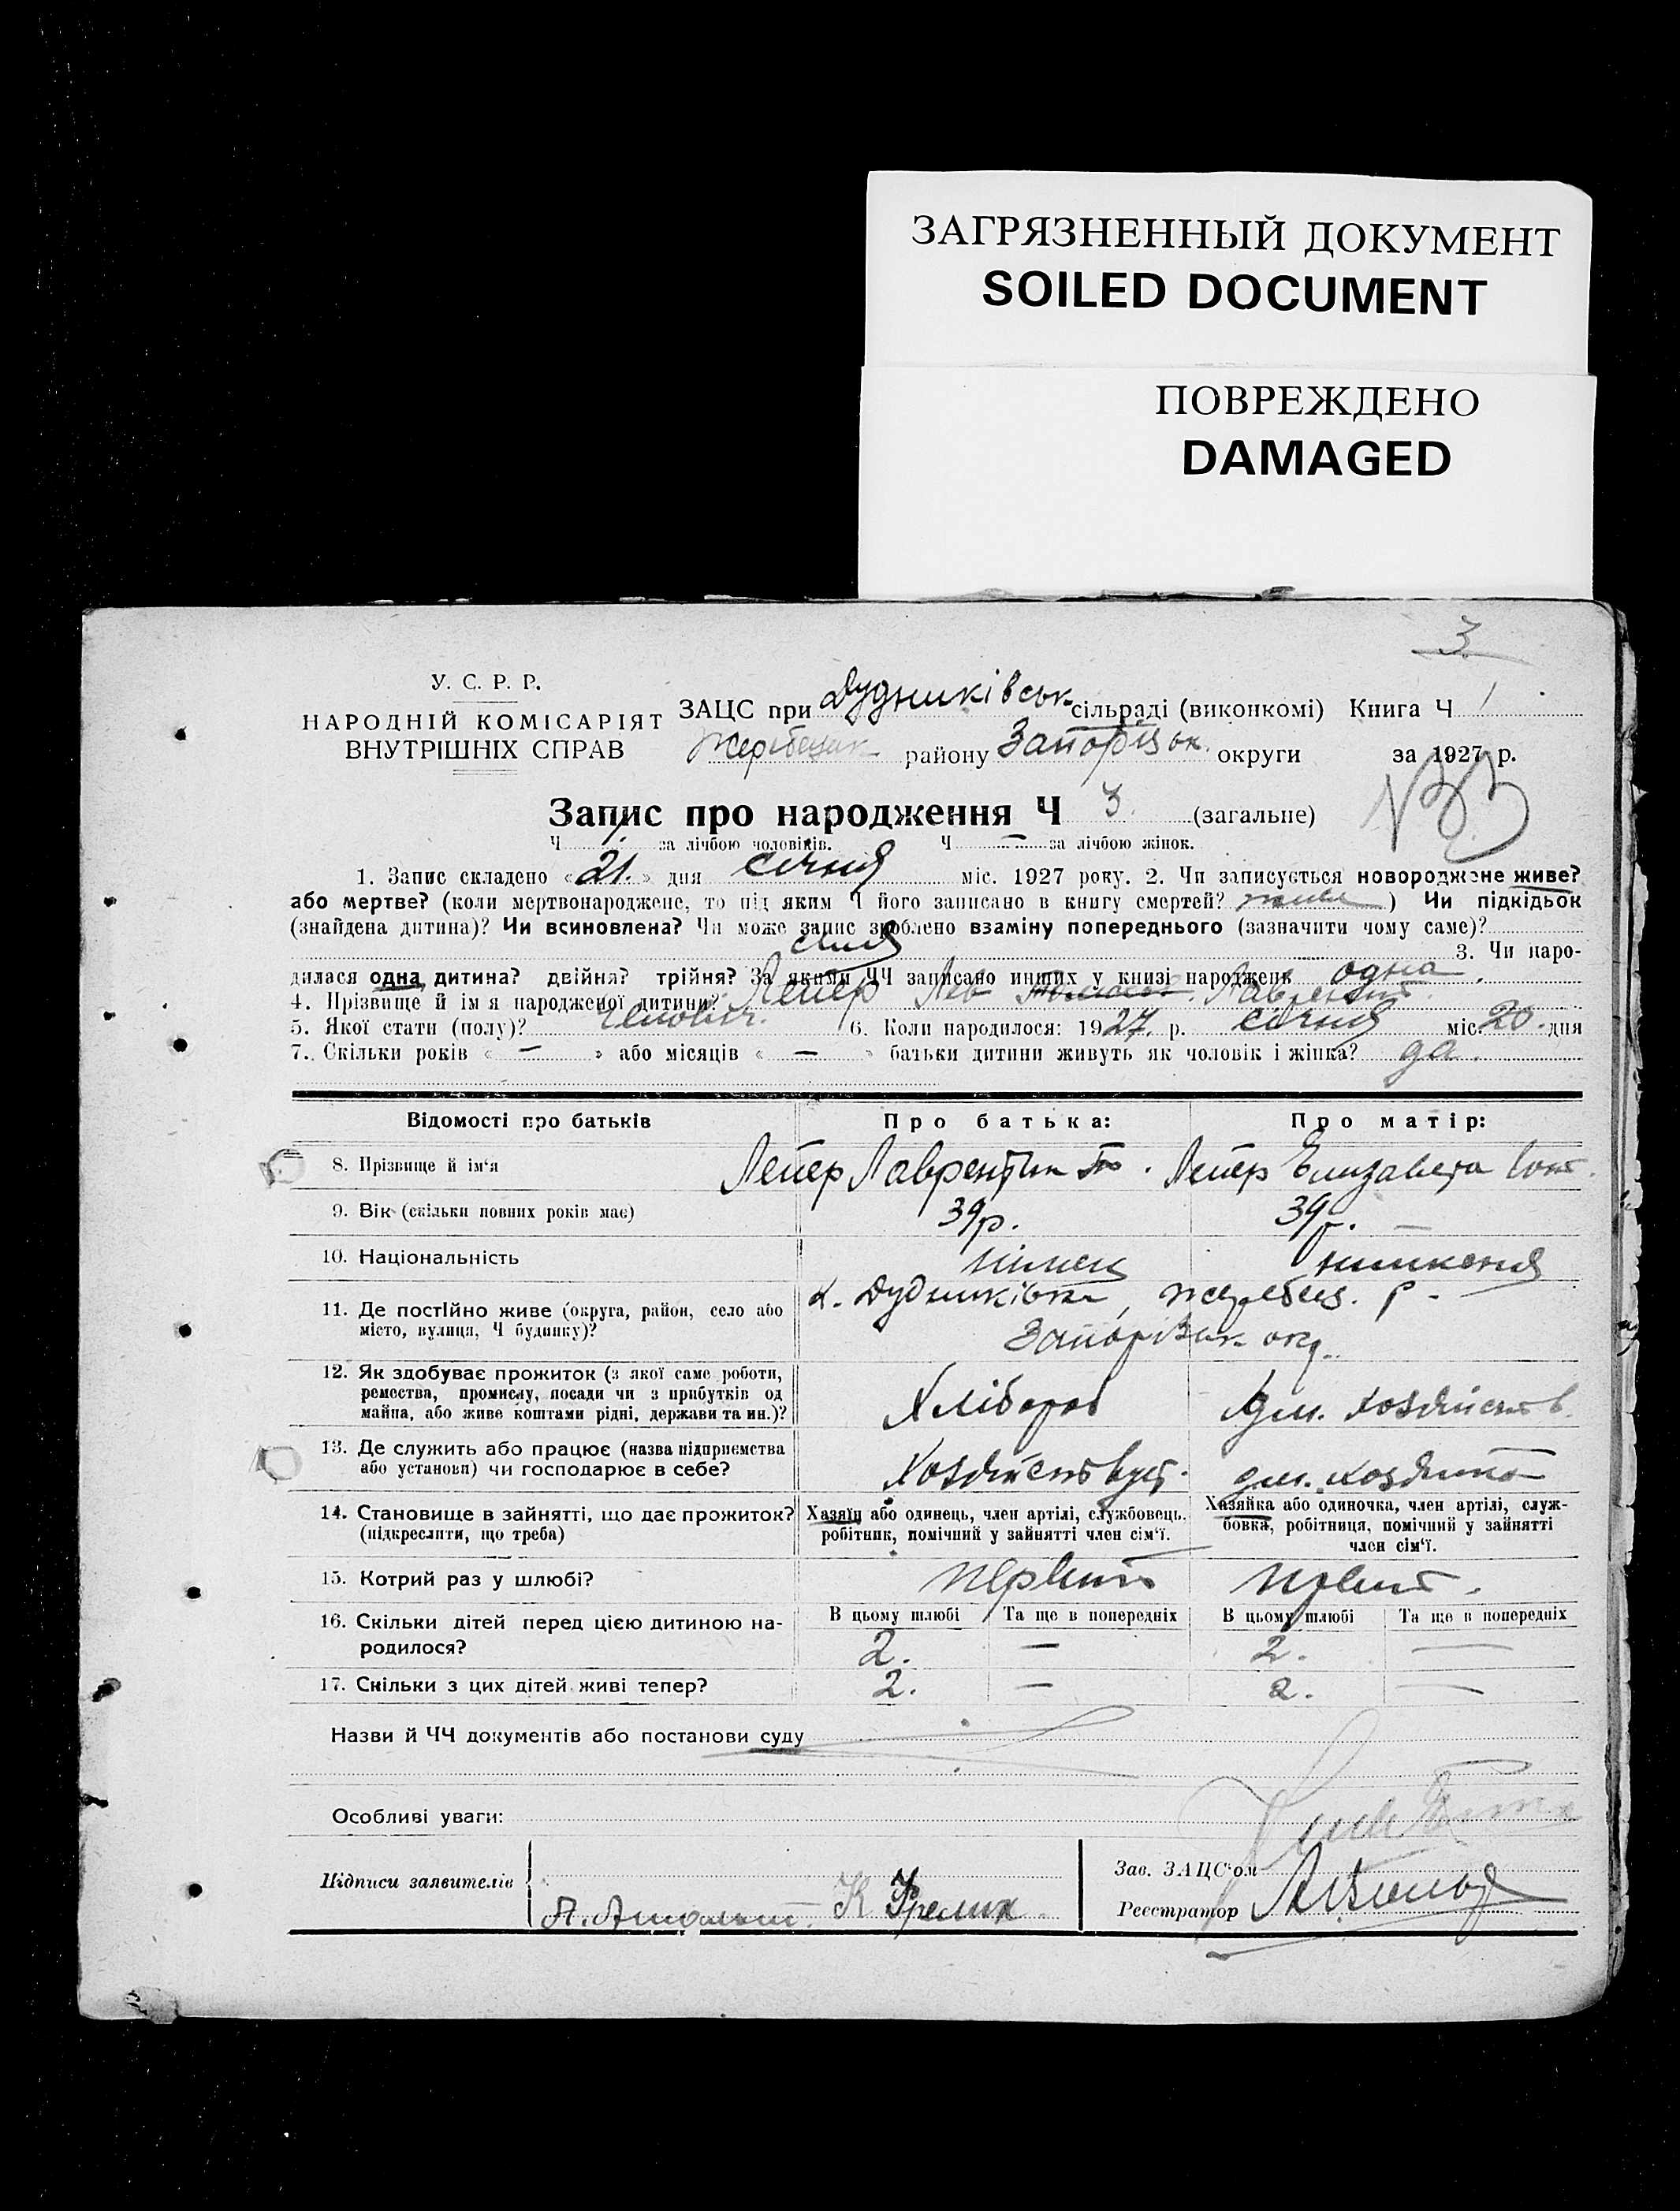 ЗАГРЯЗНЕННЫЙ ДОКУМЕНТ
SOILED DOCUMENT
ПОВРЕЖДЕНО
DAMAGED
3.
У. С. Р. Р.
НАРОДНІЙ КОМІСАРІЯТ
ВНУТРІШНІХ СПРАВ
ЗАЦС при Дудниківськ. сільраді (виконкомі) Книга Ч 1
району Запорізьк. округи за 1927 р.
Запис про народження Ч 3. (загальне)
Ч 1 за лічбою чоловіків. Ч — за лічбою жінок.
1. Запис складено «21.» дня січня міс. 1927 року. 2. Чи записується новороджене живе?
або мертве? (коли мертвонароджене, то під яким Ч його записано в книгу смертей? живе) Чи підкідьок
(знайдена дитина)? Чи всиновлена? Чи може запис зроблено взаміну попереднього (зазначити чому саме)?
3. Чи наро-
дилася одна дитина? двійня? трійня? За якими ЧЧ записано инших у книзі народжень одна
4. Прізвище й ім'я народженої дитини? Лейер Лев
5. Якої стати (полу)? 6. Коли народилося: 1927. р. січня міс. 20. дня
7. Скільки років « — » або місяців « — » батьки дитини живуть як чоловік і жінка? да.
Відомості про батьків
Про батька:
Про матір:
8. Прізвище й ім'я
Лейер Лаврентий
Лейер Елизавета
9. Вік (скільки повних років має)
39р.
39р. —
10. Національність
німець
11. Де постійно живе (округа, район, село або
місто, вулиця, Ч будинку)?
Дудниківка, жеребец. р.
Запорізьк. окр.
12. Як здобуває прожиток (з якої саме роботи,
ремества, промислу, посади чи з прибутків од
майна, або живе коштами рідні, держави та ин.)?
Хлібороб
13. Де служить або працює (назва підприємства
або установи) чи господарює в себе?
14. Становище в зайнятті, що дає прожиток?
(підкреслити, що треба)
Хазяїн або одинець, член артілі, службовець,
робітник, помічний у зайнятті член сім'ї.
Хазяйка або одиночка, член артілі, служ-
бовка, робітниця, помічний у зайнятті
член сім'ї.
15. Котрий раз у шлюбі?
16. Скільки дітей перед цією дитиною на-
родилося?
В цьому шлюбі
Та ще в попередніх
В цьому шлюбі
Та ще в попередніх
2. — 2. —
17. Скільки з цих дітей живі тепер?
2. — 2. —
Назви й ЧЧ документів або постанови суду
Особливі уваги:
Підписи заявителів
К Фрелих
Зав. ЗАЦС'ом
Реєстратор